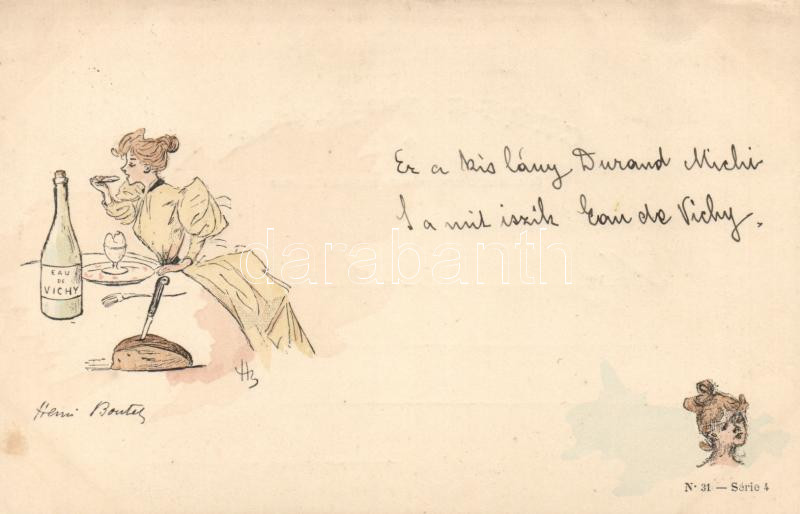 Ez a kis lány Durand Michi
S a mit iszik Eau de Vichy.
EAU
DE
VICHY
darabanth
HB
Henri Boutet
N° 31 — Série 4